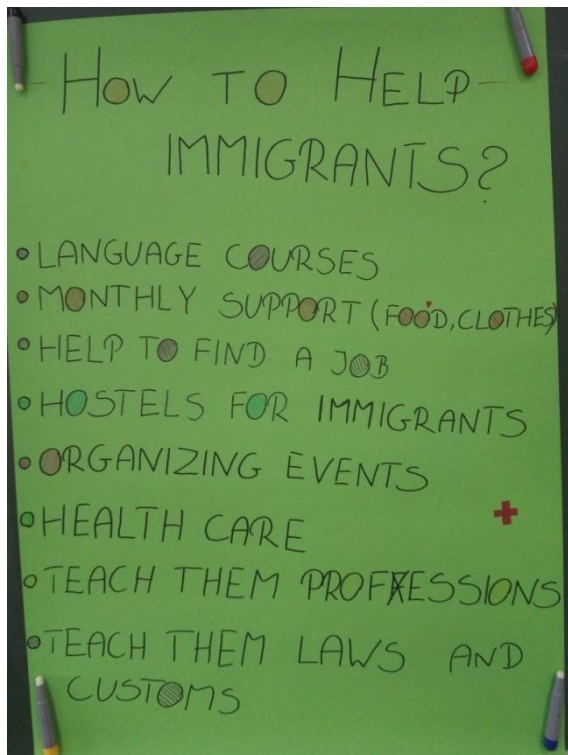 HOW TO HELP
IMMIGRANTS?
• LANGUAGE COURSES
• MONTHLY SUPPORT (FOOD, CLOTHES)
• HELP TO FIND A JOB
• HOSTELS FOR IMMIGRANTS
• ORGANIZING EVENTS
• HEALTH CARE
• TEACH THEM PROFESSIONS
• TEACH THEM LAWS AND
CUSTOMS